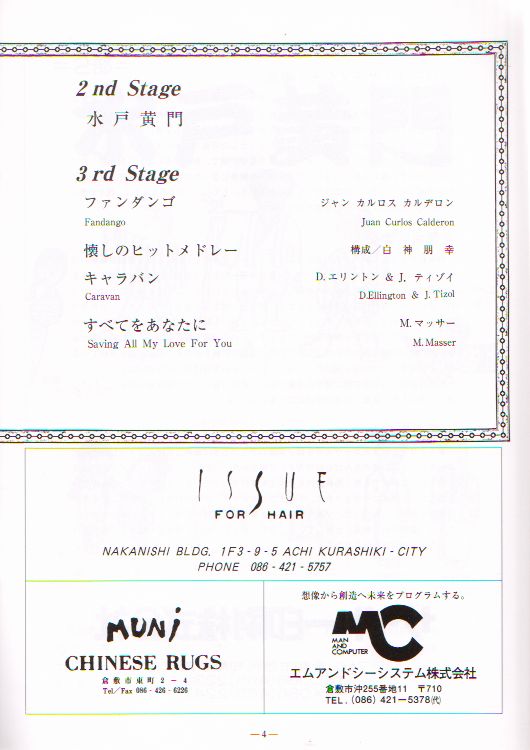 2nd Stage
水戸黄門
3rd Stage
ファンダンゴ ジャン カルロス カルデロン
Fandango Juan Curlos Calderon
懐しのヒットメドレー 構成／白神朋幸
キャラバン D.エリントン & J.ティゾイ
Caravan D.Ellington & J.Tizol
すべてをあなたに M.マッサー
Saving All My Love For You M.Masser
ISSUE
FOR HAIR
NAKANISHI BLDG. 1F3-9-5 ACHI KURASHIKI-CITY
PHONE 086-421-5757
MUNI
CHINESE RUGS
倉敷市東町2－4
Tel/Fax 086-426-6226
想像から創造へ未来をプログラムする。
MC
MAN
AND
COMPUTER
エムアンドシーシステム株式会社
倉敷市沖255番地11 〒710
TEL.(086)421－5378㈹
—4—